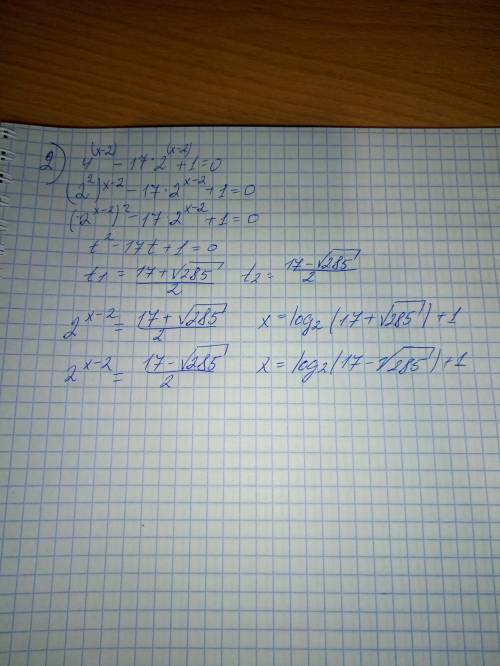 2) 4^(x-2) - 17·2^(x-2) + 1 = 0
(2²)^x-2 - 17·2^x-2 + 1 = 0
(2^x-2)² - 17·2^x-2 + 1 = 0
t² - 17t + 1 = 0
t₁ = (17+√285)/2 t₂ = (17-√285)/2
2^x-2 = (17+√285)/2 x = log₂(17+√285) + 1
2^x-2 = (17-√285)/2 x = log₂(17-√285) + 1